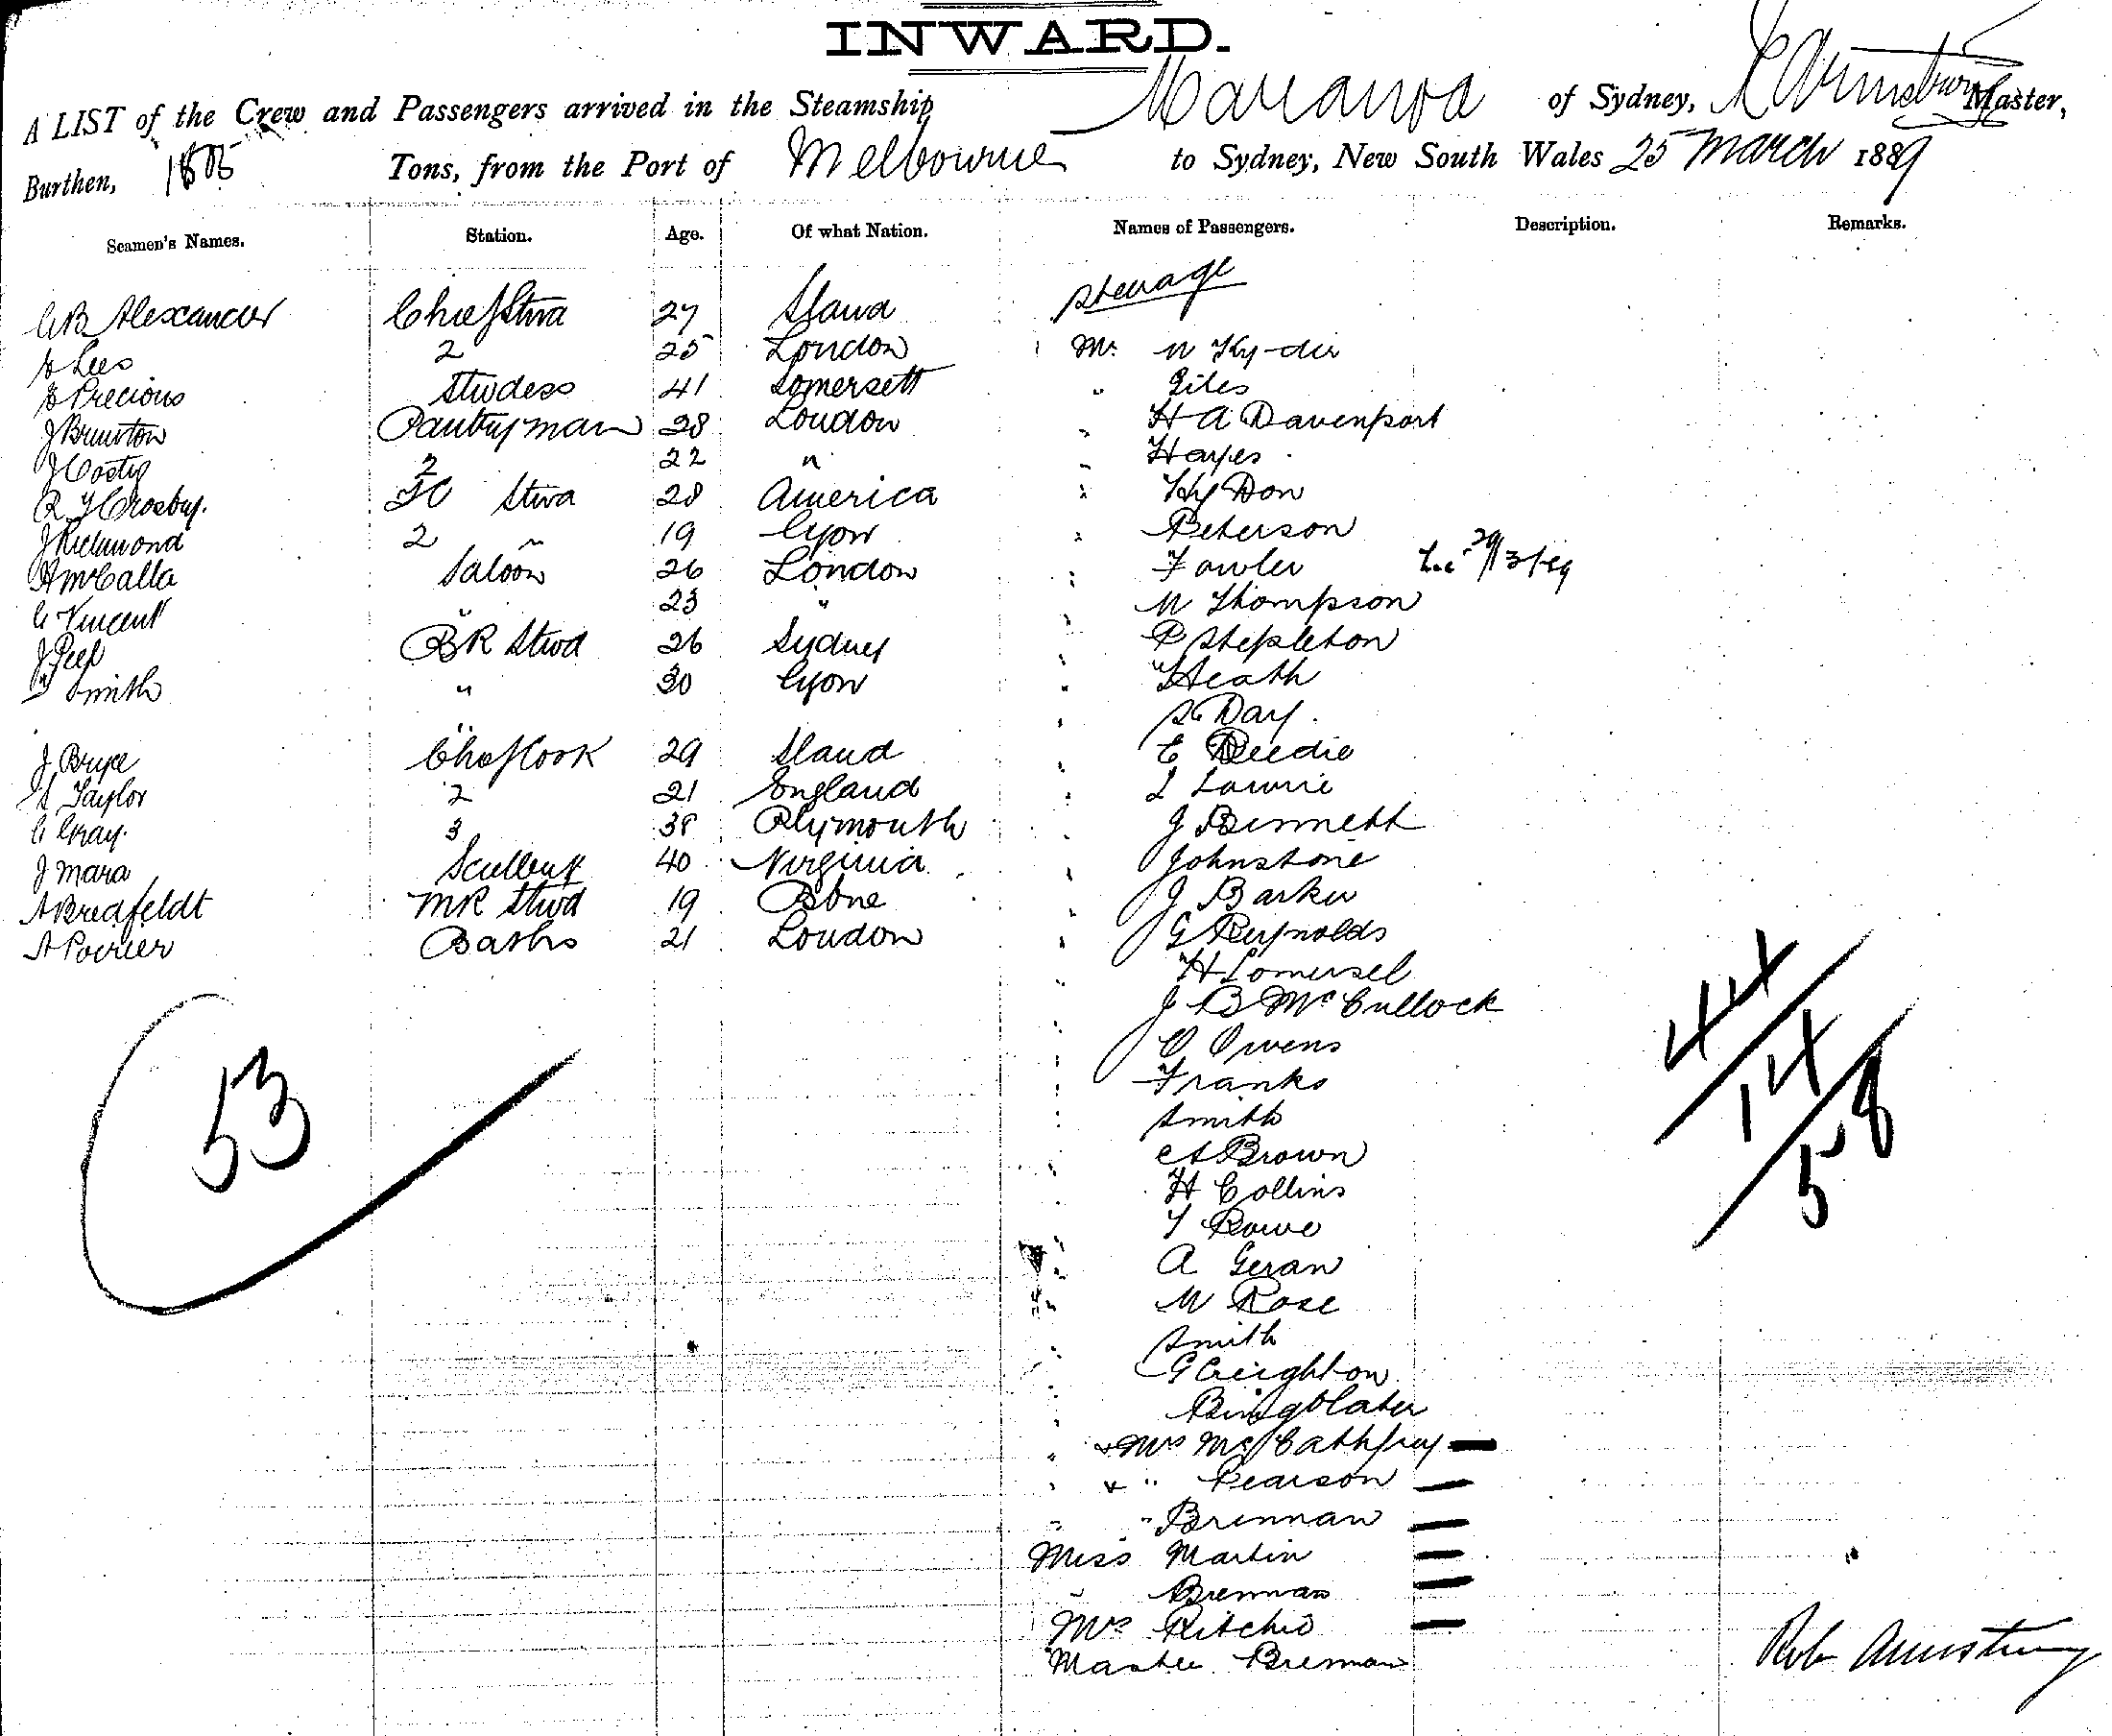 INWARD.
A LIST of the Crew and Passengers arrived in the Steamship Mararoa of Sydney, R Armstrong Master,
Burthen, Tons, from the Port of Melbourne to Sydney, New South Wales 25 March 1889
Seamen's Names. Station. Age. Of what Nation. Names of Passengers. Description. Remarks.
Steerage
C B Alexander Chief Stwd 27 Sland
H Lees 2 25 London Mr. W Ky-die
E Precious Stwdess 41 Somersett " Giles
J Brunton Pantryman 28 London " H A Davenport
J Costig 2 22 " " Hayes
R J Crosby. FC Stwd 28 America " Hy Don
J Richmond 2 " 19 Cyon " Peterson
H McCalla Saloon 26 London " Fowler 29/3/89
C Vincent " 23 " " W Thompson
J Peel BR Stwd 26 Sydney " P Stepleton
Smith " 30 Cyon " Heath
" S. Day.
J Bryce Chef Cook 29 Sland " E Deedie
S Taylor 2 21 England " L Lawrie
C Gray. 3 38 Plymouth " J Bennett
J Mara Scullery 40 Virginia " Johnstone
A Bredfeldt MR Stwd 19 Bone " J Barker
A Poirier Baths 21 London " G Reynolds
" H Somersel
" J B McCullock
" O Owens
" Franks
" Smith
" C A Brown
H Collins
" T Rowe
" A Geran
" W Rose
" Smith
" G Creighton
" Bingblater
" Mrs McCathfrey
" " Pearson
" " Brennan
Miss Martin
" Brennan
Mrs Ritchie
Master Brennan
53
44
14
58
Rob Armstrong